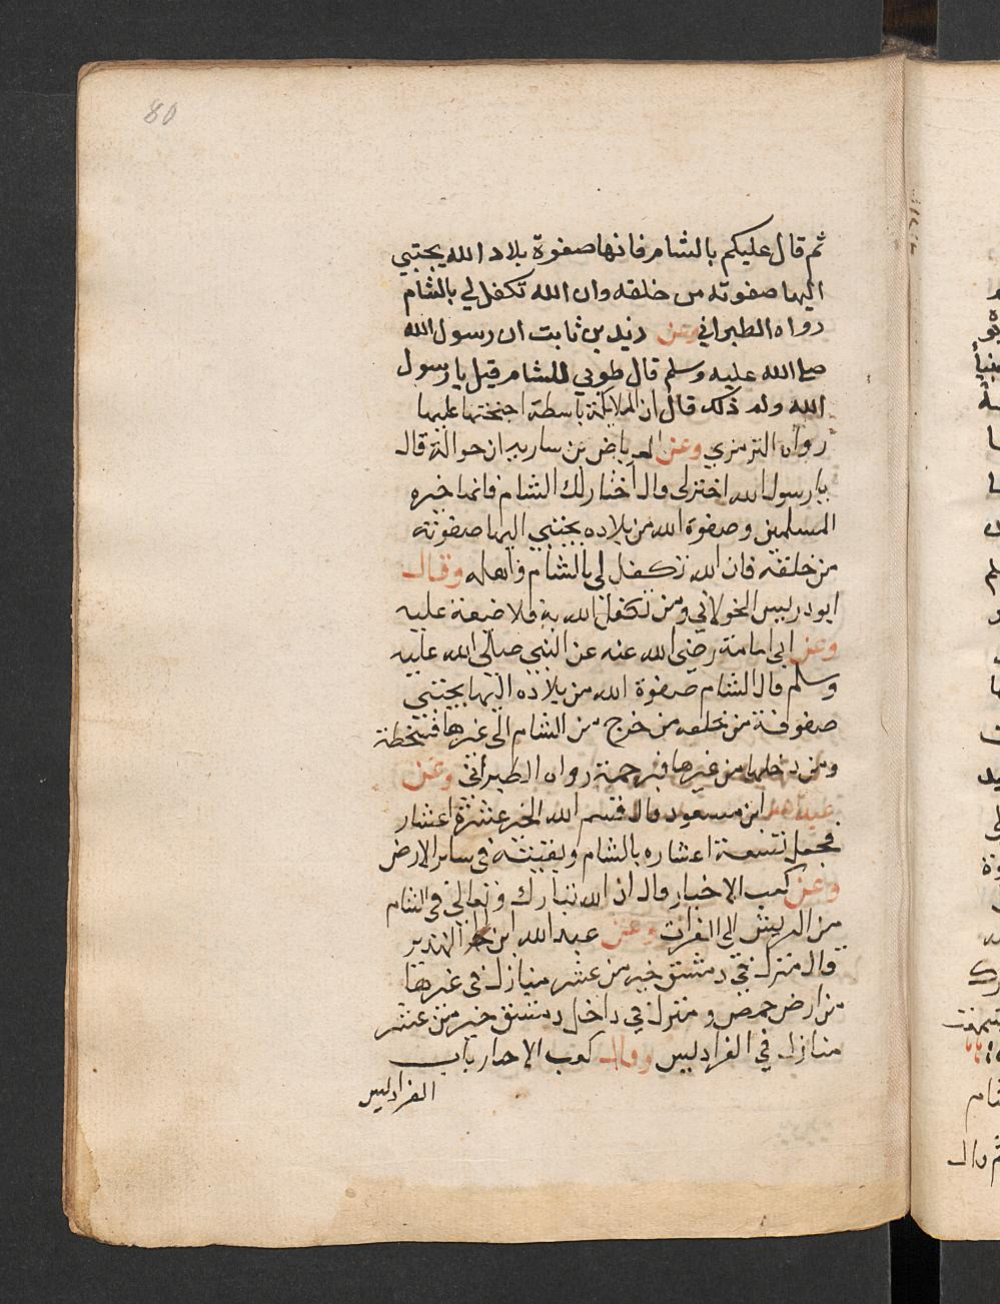 80
ثم قال عليكم بالشام فانها صفوة بلاد الله يجتبي
اليها صفوته من خلقه وان الله تكفل لي بالشام
رواه الطبراني وعن زيد بن ثابت ان رسول الله
صلى الله عليه وسلم قال طوبي للشام قيل يا رسول
الله ولم ذلك قال ان الملايكة باسطة اجنحتها عليها
رواه الترمزي وعن العرباض بن ساريه ان حوالة قال
يا رسول الله اختر لى قال اختار لك الشام فانها خيره
المسلمين وصفوة الله من بلاده يجتبي اليها صفوته
من خلقه فان الله تكفل لى بالشام واهله وقال
ابو دريس الخولاني ومن تكفل الله به فلا ضيعة عليه
وعن ابى امامة رضى الله عنه عن النبي صلى الله عليه
وسلم قال الشام صفوة الله من بلاده اليها يجتبي
من خلقه من خرج من الشام الى غيرها
ومن دخلها من غيرها رواه الطبراني وعن
ابن مسعود قال قسم الله الخير عشرة اعشار
فجعل تسعة اعشاره بالشام وبقيته فى ساير الارض
وعن كعب الاخبار قال ان الله تبارك وتعالى فى الشام
من العريش الى الفرات وعن عبد الله ابن
قال منزل في دمشق خير من عشر منازل فى غيرها
من ارض حمص ومنزل في داخل دمشق خير من عشر
منازل في الفراديس وقال كعب الاحبار باب
الفراديس